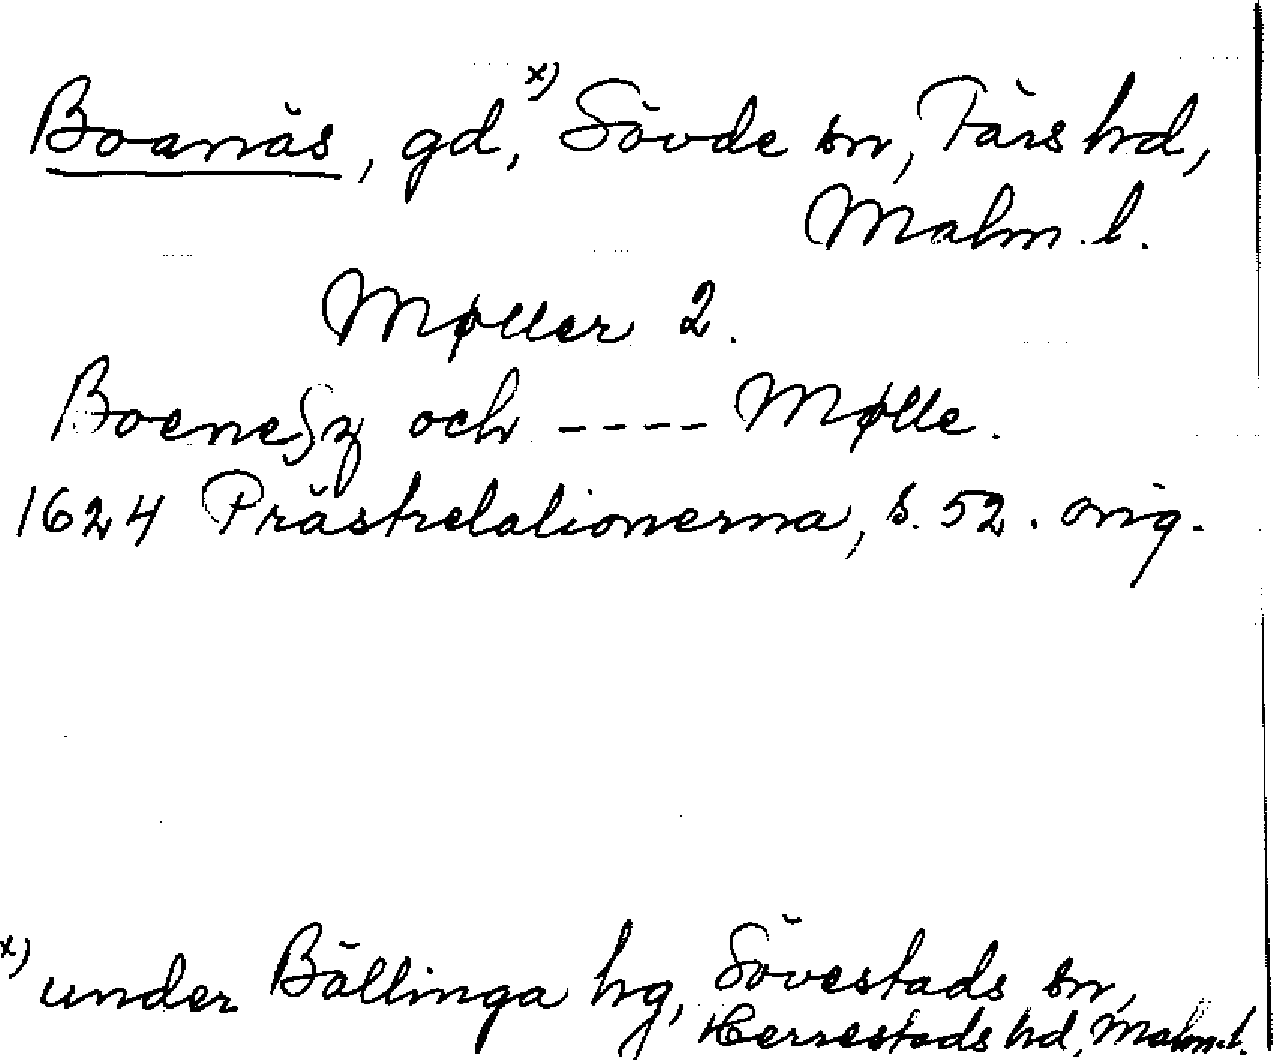 Boanäs, gd, x) Sövde sn, Färs hd,
Malm. l.
Møller 2.
Boenesz och ---- Mølle.
1624 Prästrelationerna, s. 52. orig.
x) under Bällinga hg, Sövestads sn,
Herrestads hd, Malm.l.